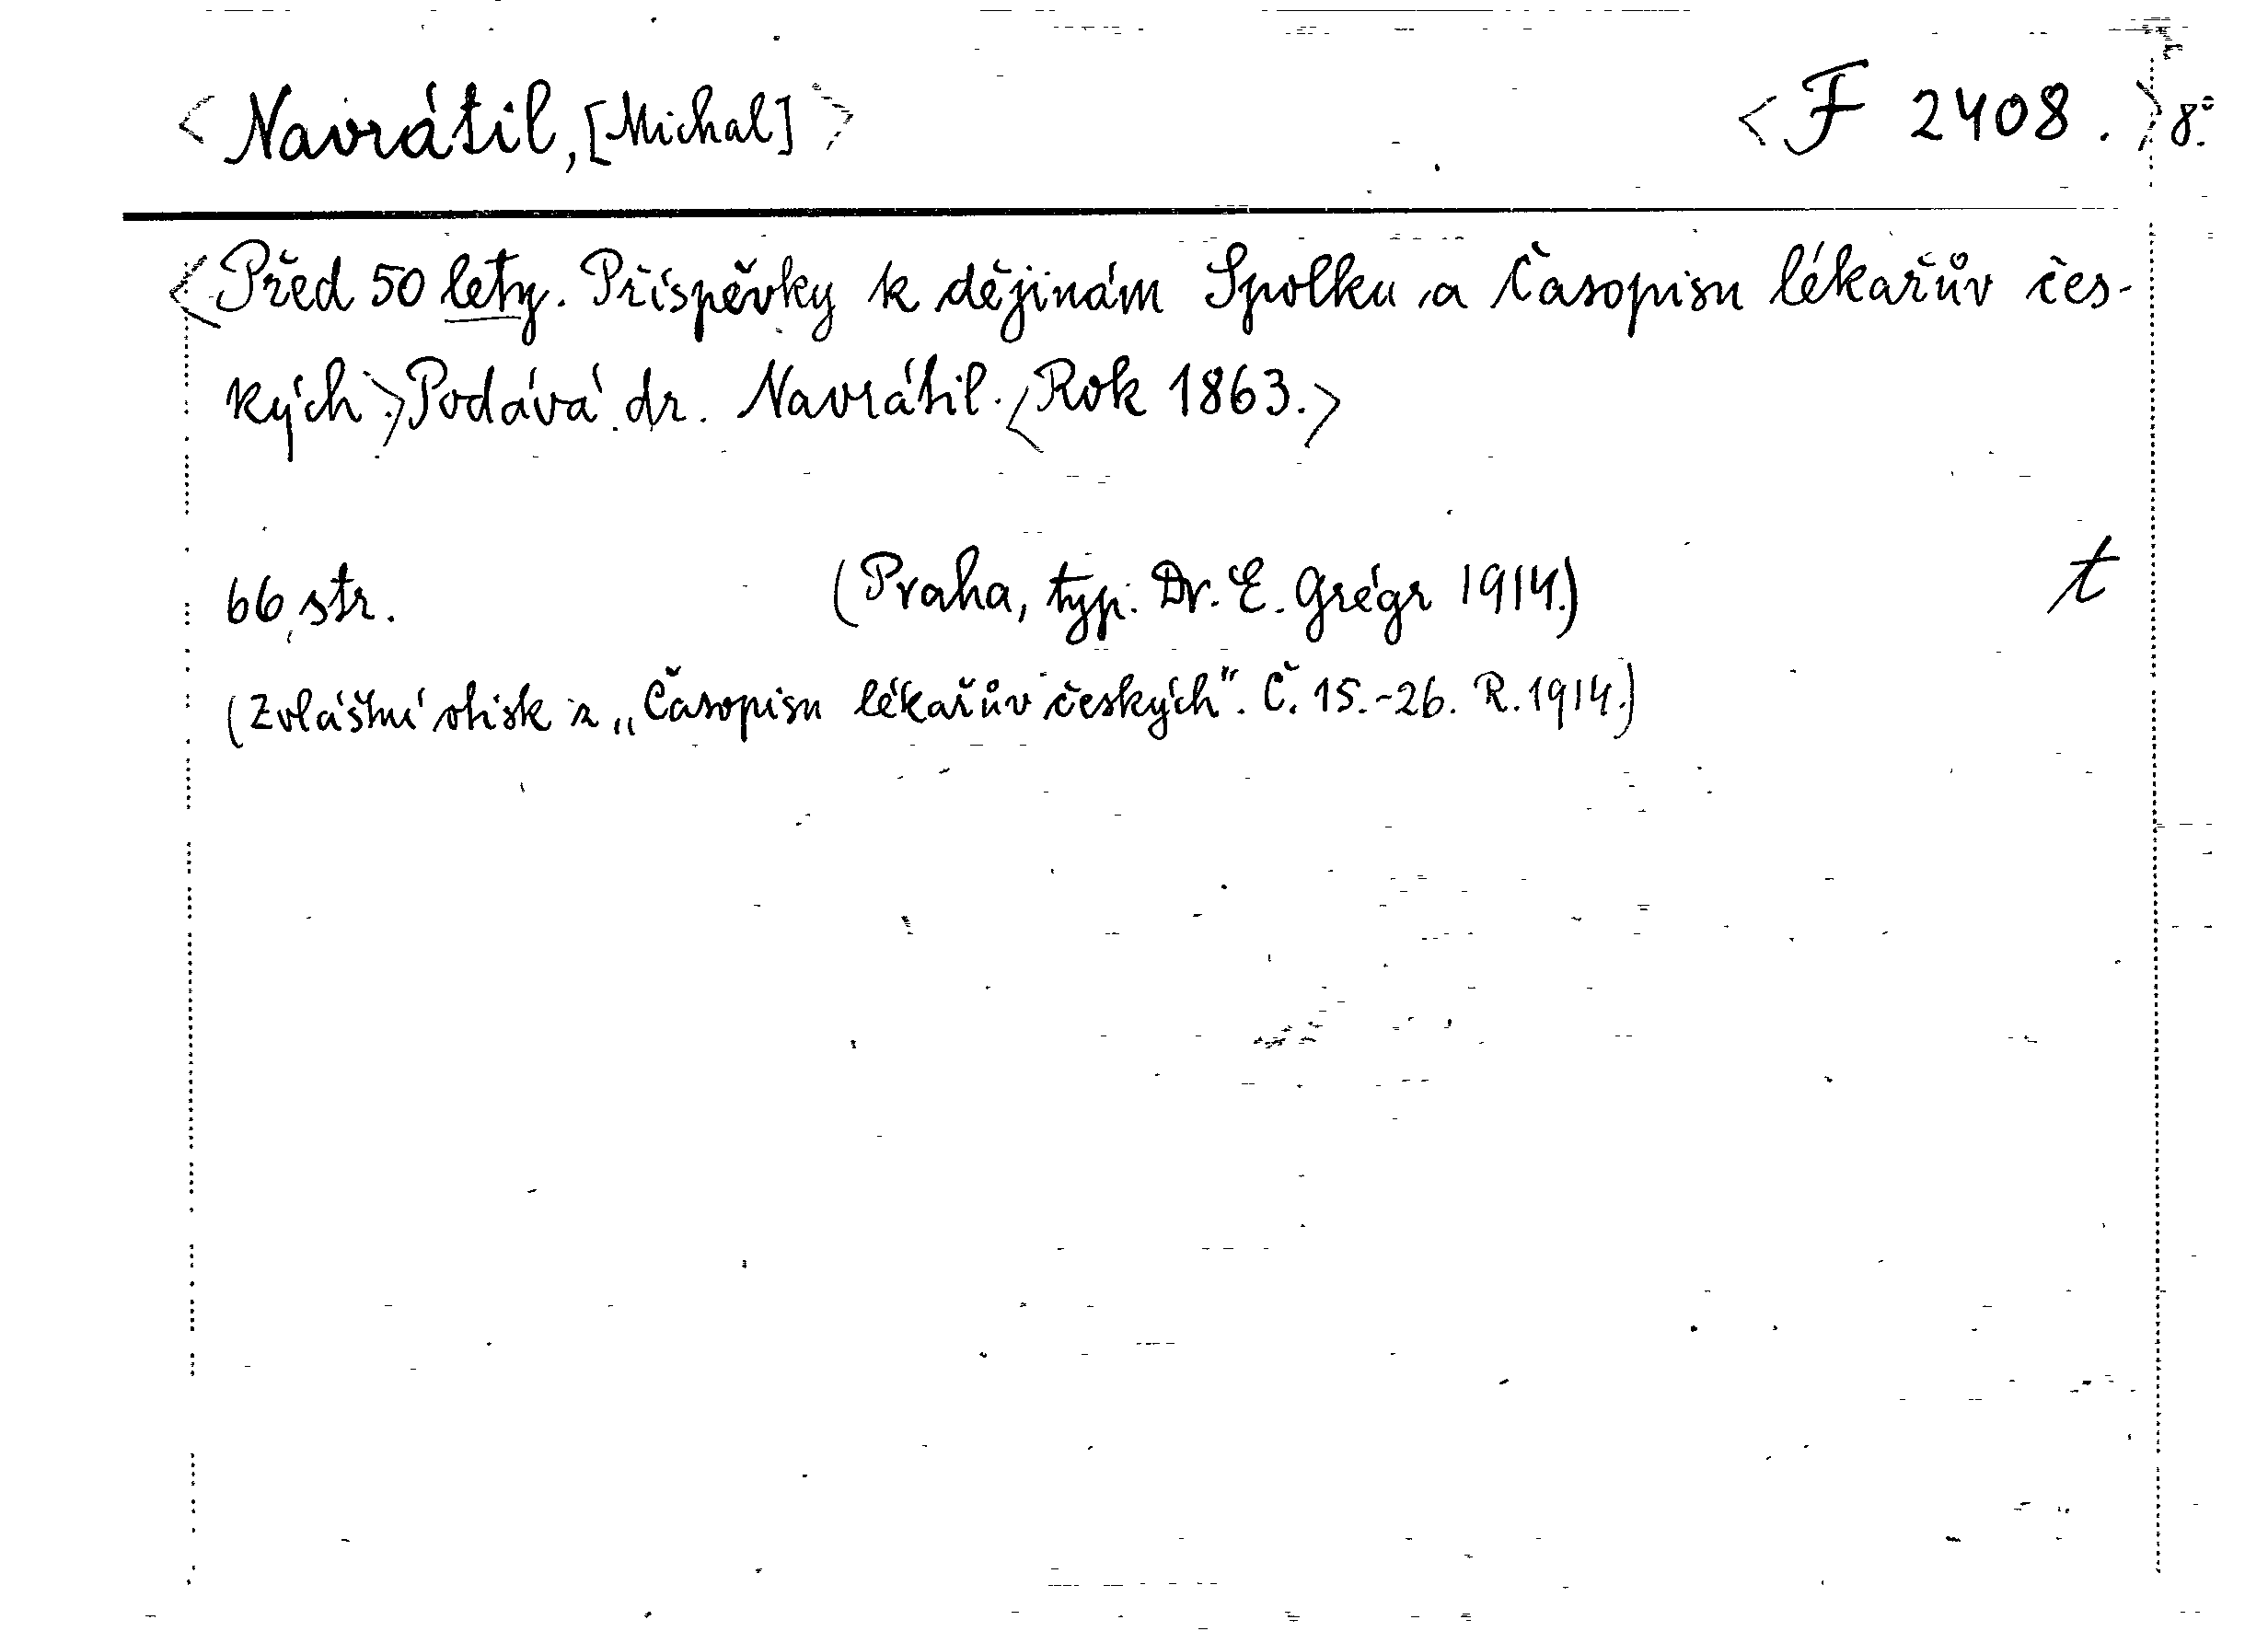 <Navrátil, [Michal]> <F 2408.> 8°.
<Před 50 lety. Příspěvky k dějinám Spolku a Časopisu lékařův čes-
kých.> Podává dr. Navrátil. <Rok 1863.>
66 str. (Praha, typ. Dr. E. Grégr 1914.) t
(Zvláštní otisk z „Časopisu lékařův českých". Č. 15.-26. R. 1914.)